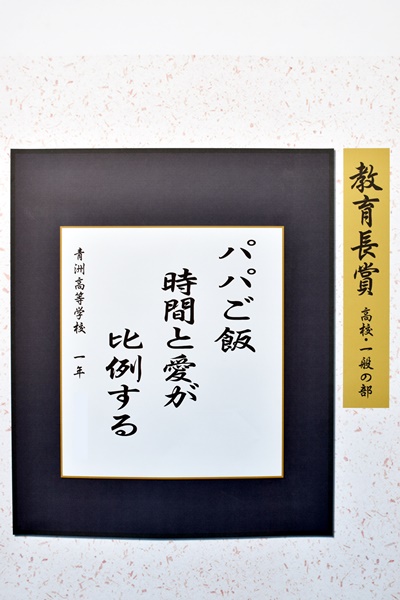 教育長賞 高校・一般の部
パパご飯
時間と愛が
比例する
青洲高等学校 一年